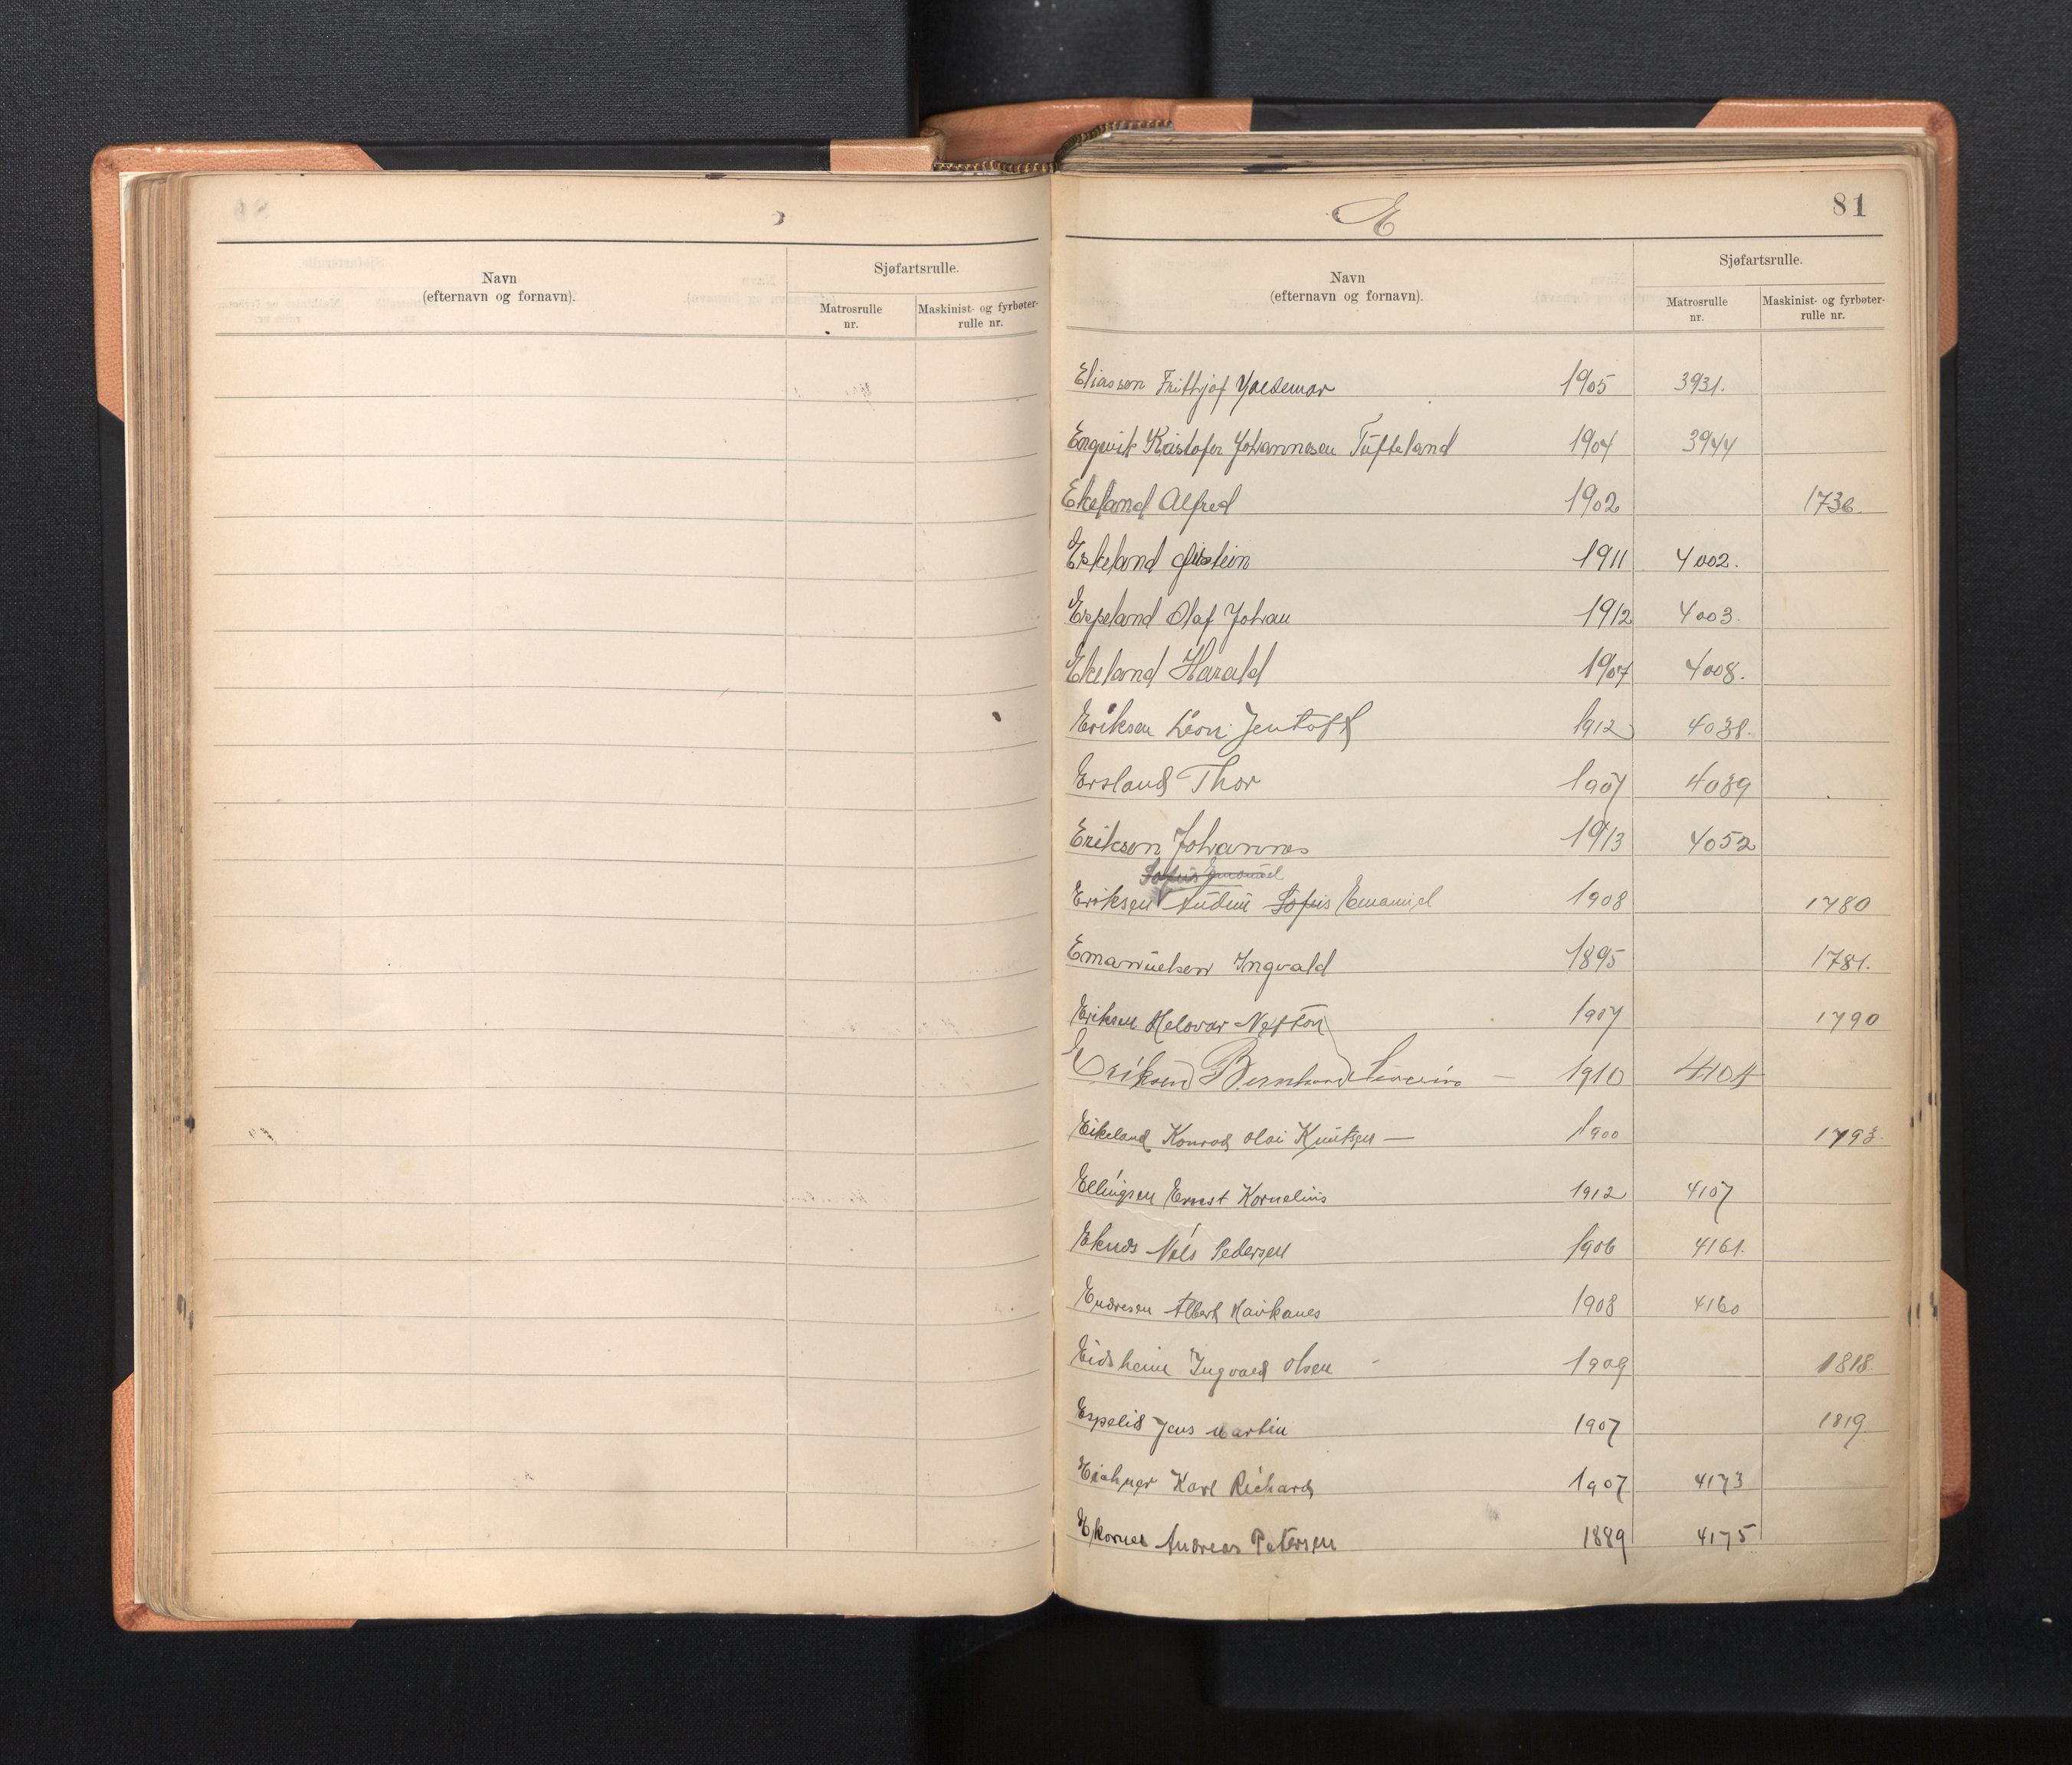 Navn
(efternavn og fornavn).
Sjøfartsrulle.
Matrosrulle
nr.
Maskinist- og fyrbøter-
rulle nr.
E
81
Navn
(efternavn og fornavn).
Sjøfartsrulle.
Matrosrulle
nr.
Maskinist- og fyrbøter-
rulle nr.
Eliassen Frithjof Valdemar 1905 3931.
Engevik Kristofer Johannesen Tufteland 1904 3944
Ekeland Alfred 1902 1736.
Eskeland 1911 4002.
Espeland Olaf Johan 1912 4003.
Ekeland Harald 1907 4008.
Eriksen Leon Jentoft 1912 4038.
Ersland Thor 1907 4039
Eriksen Johannes 1913 4052
Sofus Emanuel
Eriksen Audun Sofus Emanuel 1908 1780
Emanuelsen Ingvald 1895 1781.
Eriksen Nefton 1907 1790
Eriksen Bernhard Severin — 1910 4104
Eikeland Konrad Olai Knutsen — 1900 1793.
Ellingsen Ernst Kornelius 1912 4107
Eknes Nils Pedersen 1906 4161.
Endresen Albert Kavkanes 1908 4160
Eidsheim Ingvald Olsen - 1909 1818.
Espelid Jens Martin 1907 1819
Eichner Karl Richard 1907 4173
Ekornes Andreas Petersen 1889 4175